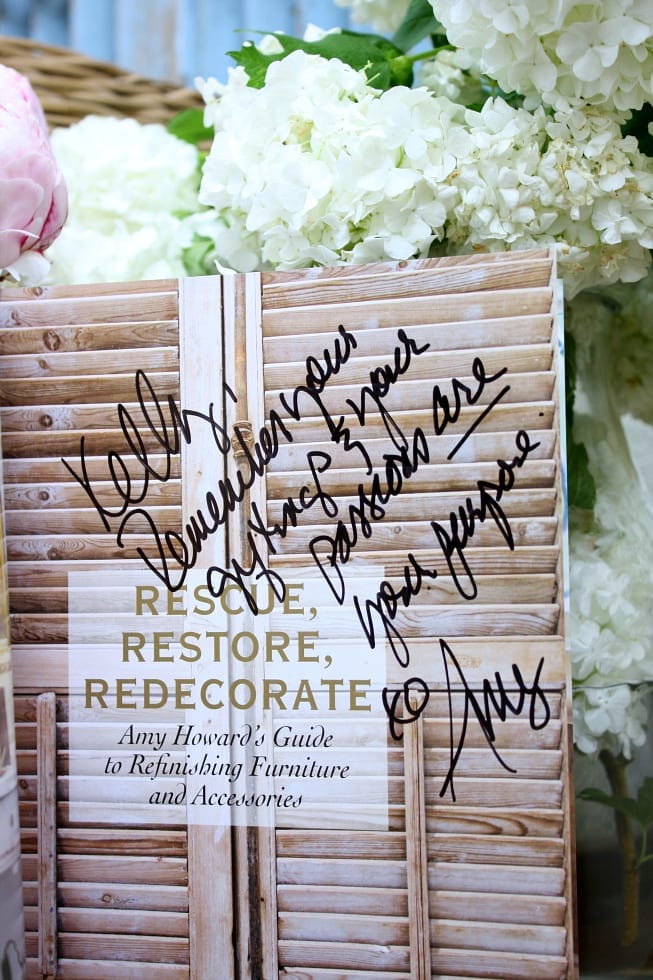 Kelly,
Remember your
giftings & your
passions are
your purpose.
xo Amy
RESCUE,
RESTORE,
REDECORATE
Amy Howard's Guide
to Refinishing Furniture
and Accessories